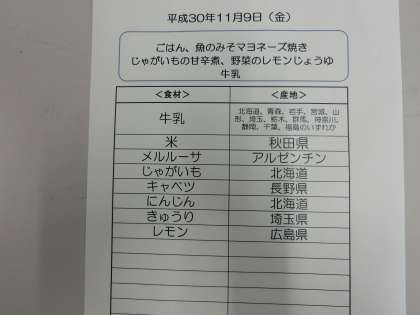 平成30年11月9日（金）
ごはん、魚のみそマヨネーズ焼き
じゃがいもの甘辛煮、野菜のレモンじょうゆ
牛乳
＜食材＞ ＜産地＞
牛乳 北海道、青森、岩手、宮城、山
形、埼玉、栃木、群馬、神奈川、
静岡、千葉、福島のいずれか
米 秋田県
メルルーサ アルゼンチン
じゃがいも 北海道
キャベツ 長野県
にんじん 北海道
きゅうり 埼玉県
レモン 広島県